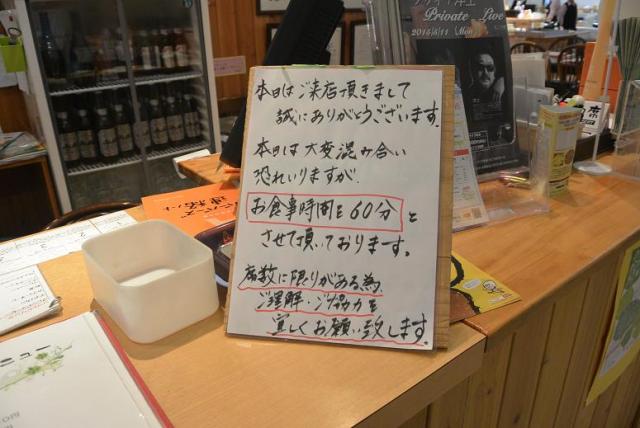 本日はご来店頂きまして
誠にありがとうございます。
本日は大変混み合い
恐れいりますが、
お食事時間を60分と
させて頂いております。
席数に限りがある為、
ご理解・ご協力を
宜しくお願い致します。
Private Live
2015/6/11 Mon